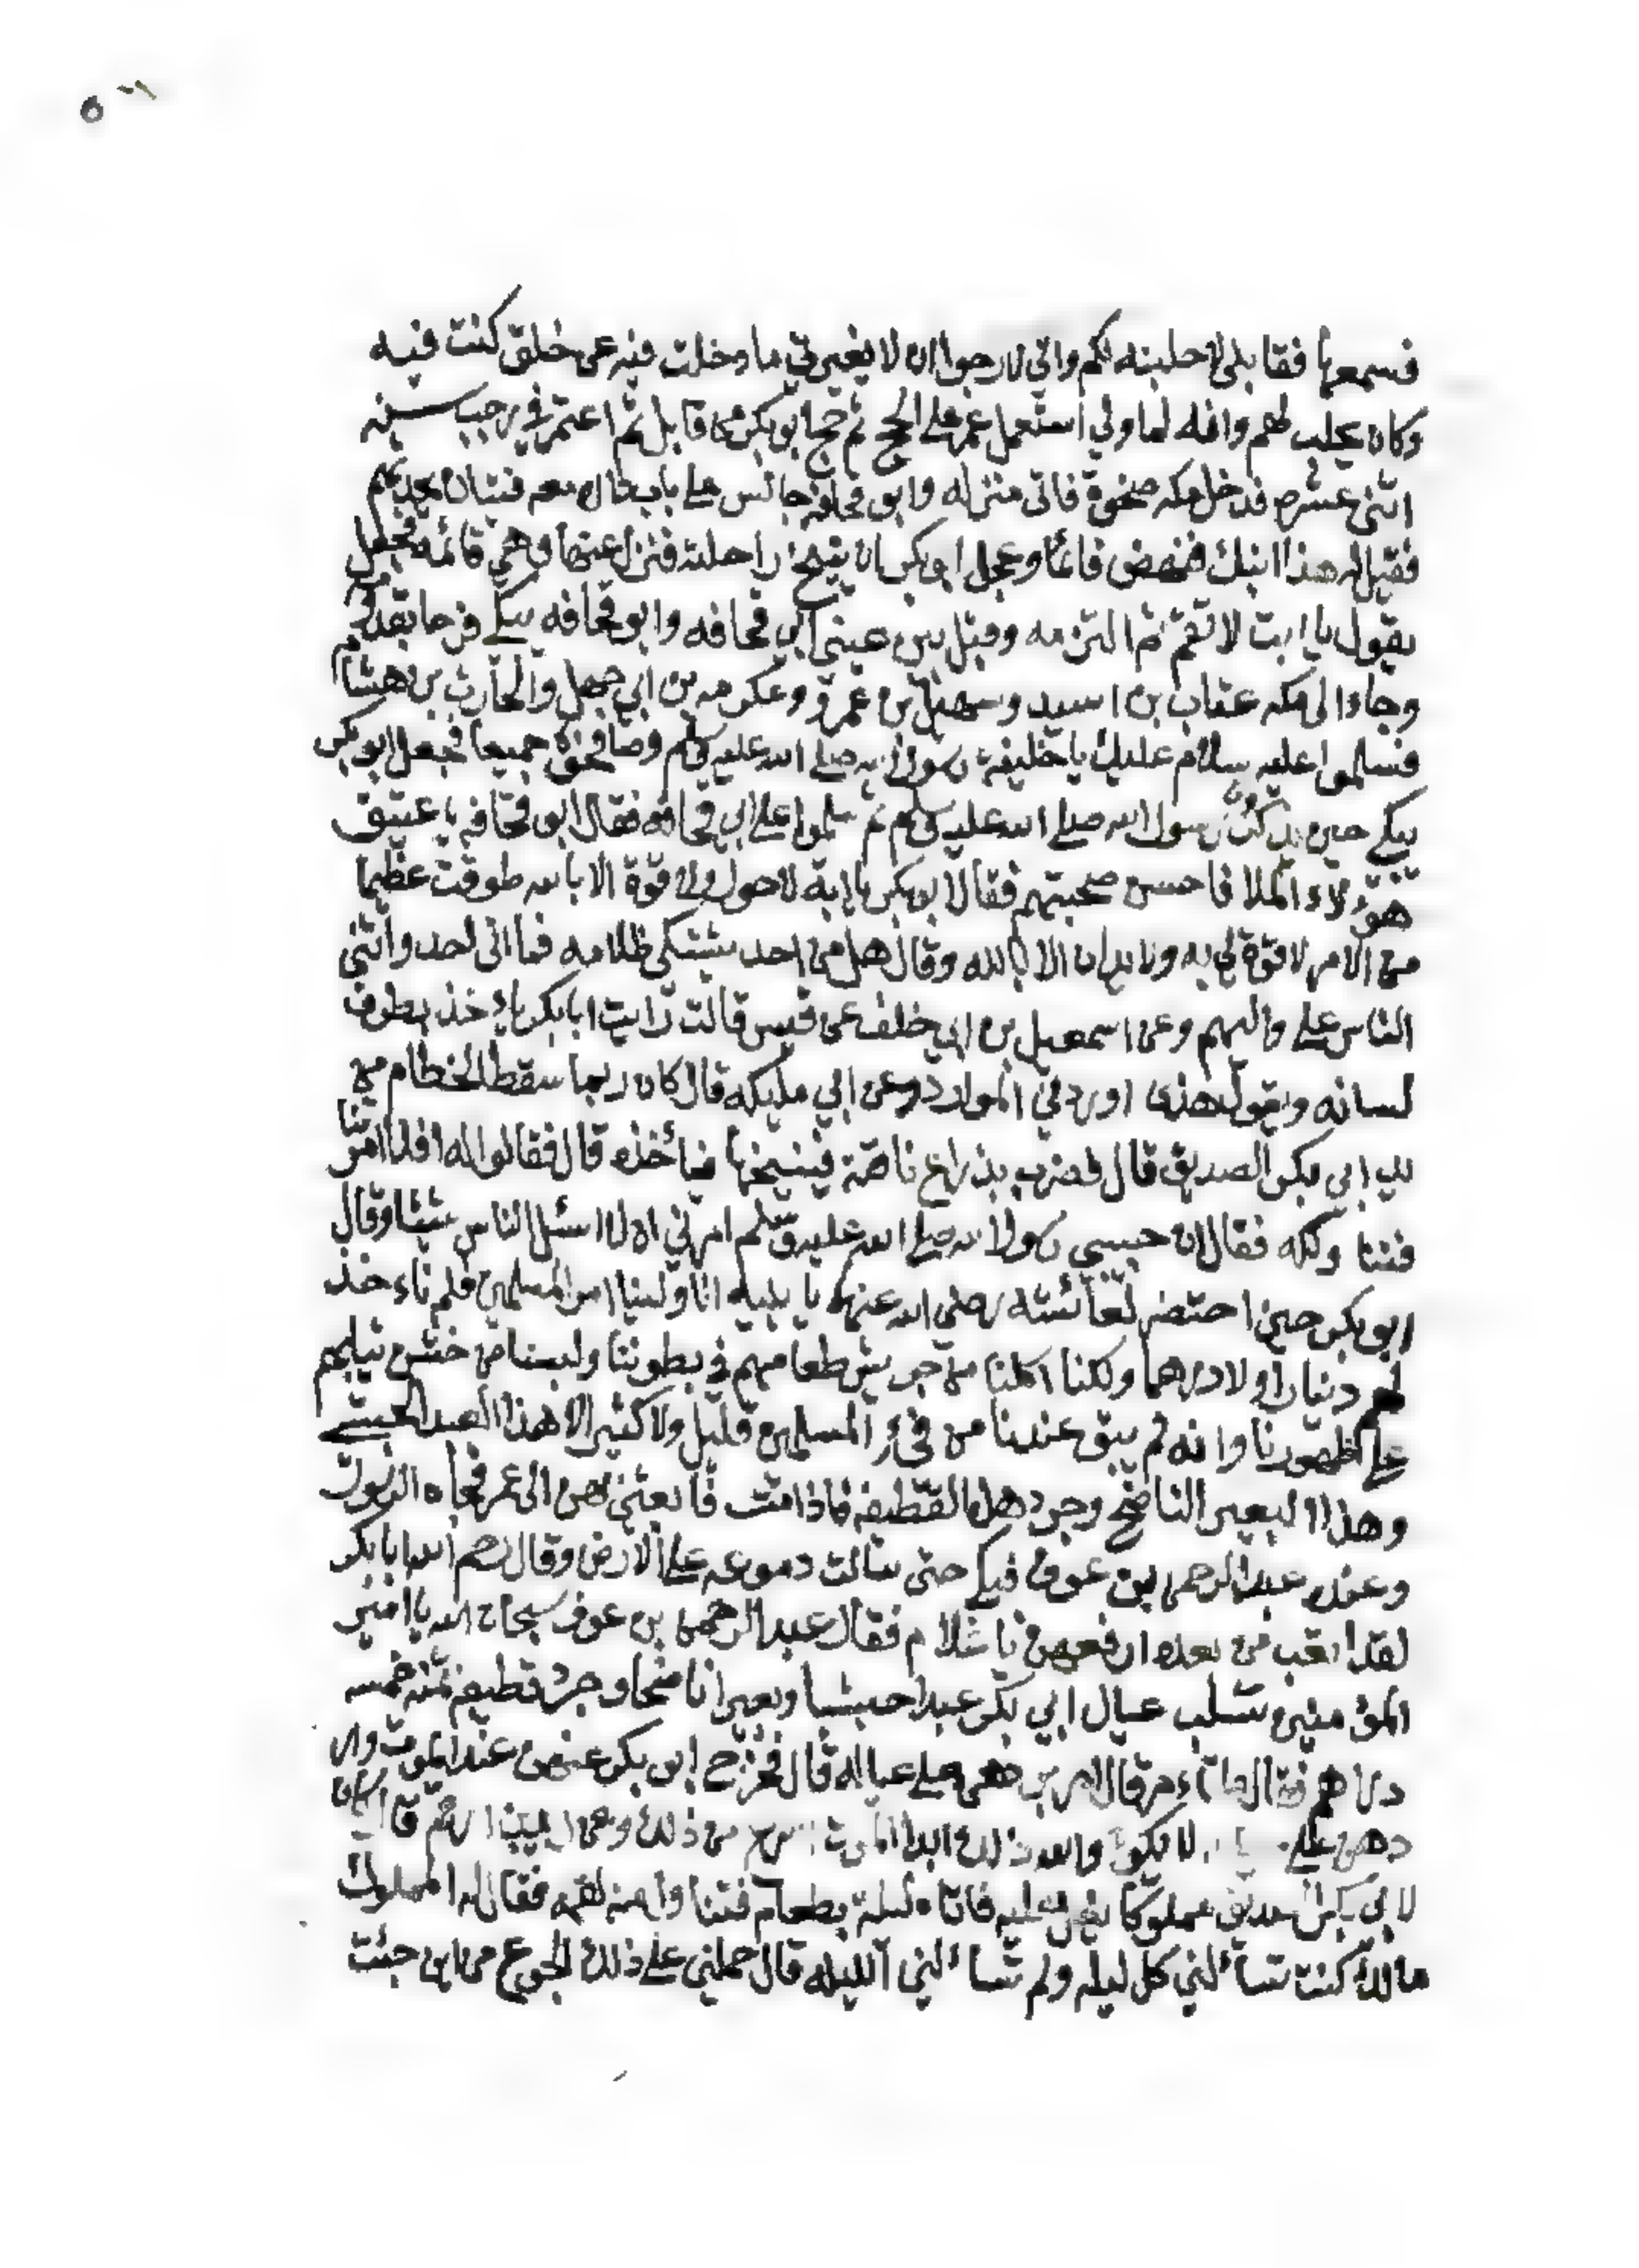 فسمعها فقا بلى لاحلبنه لكم واني لارجوا ان لا يغيرني ما دخلت فيه عن خلق كنت فيه
وكان يحلب لهم وانه لما ولي استعمل عمر على الحج ثم حج ابو بكر من قابل ثم اعتمر في رجب سنه
اثنى عشره فدخل مكه ضحوة فاتى منزله وابو قحافه جالس على باب داره معه فتيان يحدثهم
فقيل له هذا ابنك فنهض قائما وعجل ابو بكر ان ينيخ راحلته فنزل عنها وهي قائمه فجعل
يقول يا ابت لا تقم ثم التزمه وقبل بين عيني ابي قحافه وابو قحافه يبكي فرحا بقدومه
وجاء الى مكه عتاب بن اسيد وسهيل بن عمرو وعكرمه بن ابي جهل والحارث بن هشام
فسلموا عليه سلام عليك يا خليفة رسول الله صلى الله عليه وسلم وصافحوه جميعا فجعل ابو بكر
يبكي حين يذكرون رسول الله صلى الله عليه وسلم ثم سلموا على ابي قحافه فقال ابو قحافه يا عتيق
هؤلاء الملا فاحسن صحبتهم فقال ابو بكر يا ابة لا حول ولا قوة الا بالله طوقت عظيما
من الامر لا قوة لي به ولا يدان الا بالله وقال هل من احد يشتكي ظلامه فما اتى احد واثنى
الناس على واليهم وعن اسمعيل بن ابي خلف عن قيس قالت رايت ابا بكر ياخذ بطرف
لسانه ويقول هذا اوردني الموارد وعن ابي مليكه قال كان ربما سقط الخطام من
يد ابي بكر الصديق قال فضرب بذراع ناقته فينيخها فيأخذه قال فقالوا له افلا امرتنا
فننا ولكه فقال ان حبيبي رسول الله صلى الله عليه وسلم امرني ان لا اسئل الناس شيئا وقال
ابو بكر حين احتضر لعائشه رضي الله عنها يا بنيه انا ولينا امر المسلمين فلم ناءخذ
لهم دينارا ولا درهما ولكنا اكلنا من جريش طعامهم في بطوننا ولبسنا من خشن ثيابهم
على ظهورنا وانه لم يبق عندنا من فيء المسلمين قليل ولا كثير الا هذا العبد الحبشي
وهذا البعير الناضح وجرد هذه القطيفه فاذا مت فابعثي بهن الى عمر فجاه الرسول
وعنده عبد الرحمن بن عوف فبكى حتى سالت دموعه على الارض وقال رحم الله ابا بكر
لقد اتعب من بعده ارفعهن يا غلام فقال عبد الرحمن بن عوف سبحان الله يا امير
المؤمنين تسلب عيال ابي بكر عبدا حبشيا وبعيرا ناضحا وجرد قطيفه ثمنه خمسه
دراهم فقال ما تاءمر قال امر بردهن على عياله قال خرج ابو بكر عنهن عند الموت وانا
اردهن على لا يكون والله ذلك ابدا الموت اسرع من ذلك وعن قال كان
لابي بكر الصديق مملوكا يغل عليه فاتاه ليلة بطعام فتناول منه لقمه فقال له المملوك
مالك كنت تسأ لني كل ليله ولم تسأ لني الليله قال حملني على ذلك الجوع من اين جئت